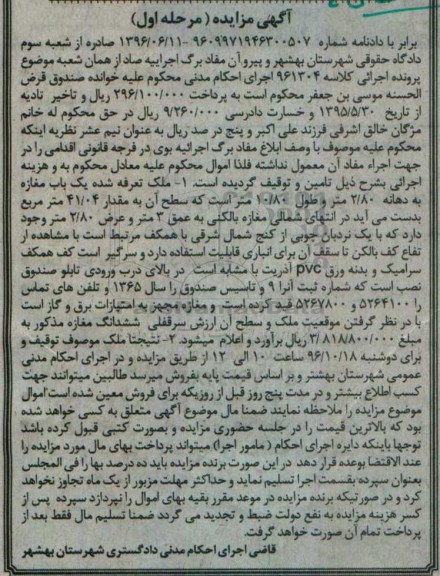 آگهی مزایده ( مرحله اول)
برابر با دادنامه شماره ۹۶۰۹۹۷۱۹۴۶۳۰۰۵۰۷-۱۳۹۶/۰۶/۱۱ صادره از شعبه سوم
دادگاه حقوقی شهرستان بهشهر و پیرو آن مفاد برگ اجراییه صاد از همان شعبه موضوع
پرونده اجرائی کلاسه ۹۶۱۳۰۴ اجرای احکام مدنی محکوم علیه خوانده صندوق قرض
الحسنه موسی بن جعفر محکوم است به پرداخت ۲۹۶/۱۰۰/۰۰۰ ریال و تاخیر تادیه
از تاریخ ۱۳۹۵/۵/۳۰ و خسارت دادرسی ۹/۲۶۰/۰۰۰ ریال در حق محکوم له خانم
مژگان خالق اشرفی فرزند علی اکبر و پنج در صد ریال به عنوان نیم عشر نظربه اینکه
محکوم علیه موصوف با وصف ابلاغ مفاد برگ اجرائیه بوی در فرجه قانونی اقدامی را در
جهت اجراء مفاد آن معمول نداشته فلذا اموال محکوم علیه معادل محکوم به و هزینه
اجرائی بشرح ذیل تامین و توقیف گردیده است. ۱- ملک تعرفه شده یک باب مغازه
به دهانه ۳/۸۰ متر و طول ۱۰/۸۰ متر است که سطح آن به مقدار ۴۱/۰۴ متر مربع
بدست می آید در انتهای شمالی مغازه بالکنی به عمق ۳ متر و عرض ۲/۸۰ متر وجود
دارد که با یک نردبان چوبی از کنج شمال شرقی با همکف مرتبط است با مشاهده ار
تفاع کف بالکن تا سقف آن برای انباری قابلیت استفاده دارد و سرگیر است کف همکف
سرامیک و بدنه ورق pvc آذریت یا مشابه است. در بالای درب ورودی تابلو صندوق
نصب است که شماره ثبت آنرا ۹ و تاسیس صندوق را سال ۱۳۶۵ و تلفن های تماس
را ۵۲۶۴۱۰۰ و ۵۲۶۷۸۰۰ قید کرده است. و مغازه مجهز به امتیازات برق و گاز است
با در نظر گرفتن موقعیت ملک و سطح آن ارزش سرقفلی ششدانگ مغازه مذکور به
مبلغ ۳/۸۱۸/۸۰۰/۰۰۰ ریال برآورد و اعلام میشود. ۲- نتیجتا ملک موصوف توقیف و
برای دوشنبه ۹۶/۱۰/۱۸ ساعت ۱۰ الی ۱۲ از طریق مزایده و در اجرای احکام مدنی
عمومی شهرستان بهشهر و بر اساس قیمت پایه بفروش میرسد طالبین میتوانند جهت
کسب اطلاع بیشتر و در مدت پنج روز قبل از روزیکه برای فروش معین شده است اموال
موضوع مزایده را ملاحظه نمایند ضمنا مال موضوع آگهی متعلق به کسی خواهد شده
بود که بالاترین قیمت را در جلسه حضوری مزایده و بصورت کتبی قبول کرده باشد
توجها باینکه دایره اجرای احکام ( مامور اجرا) میتواند پرداخت بهای مال مورد مزایده را
عند الاقتضا بوعده قرار دهد در این صورت برنده مزایده باید ده درصد بها را فی المجلس
بعنوان سپرده بقسمت اجرا تسلیم نماید و حداکثر مهلت مزبور از یک ماه تجاوز نخواهد
کرد و در صورتیکه برنده مزایده در موعد مقرر بقیه بهای اموال را نپردازد سپرده پس از
کسر هزینه مزایده به نفع دولت ضبط و تجدید می گردد ضمنا تسلیم مال فقط بعد از
پرداخت تمام آن صورت خواهد گرفت.
قاضی اجرای احکام مدنی دادگستری شهرستان بهشهر